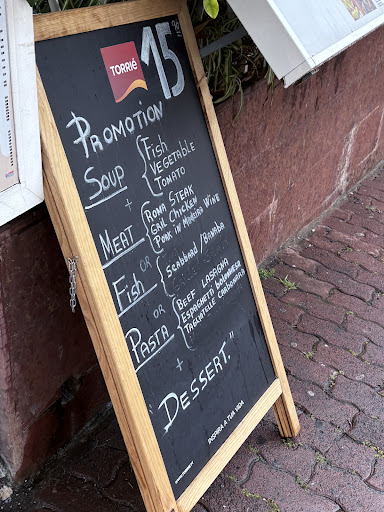 TORRIÉ
15€
PROMOTION
SOUP
FISH
VEGETABLE
TOMATO
+
MEAT
ROMA STEAK
GRIL CHICKEN
PORK IN MADEIRA WINE
OR
FISH
SCABBARD/BANANA
OR
PASTA
BEEF LASAGNA
ESPAGHETTI BOLONHESE
TAGLIATELLE CARBONARA
+
"DESSERT."
INSPIRA A TUA VIDA